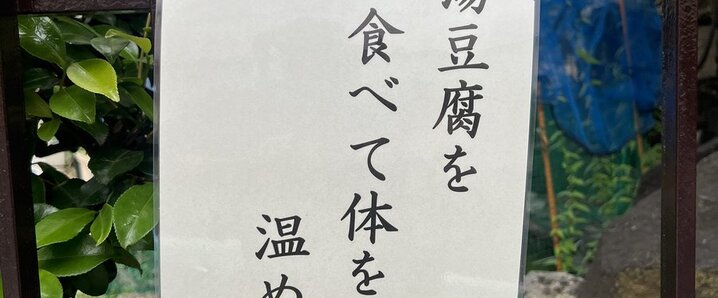 湯豆腐を
食べて体を
温め